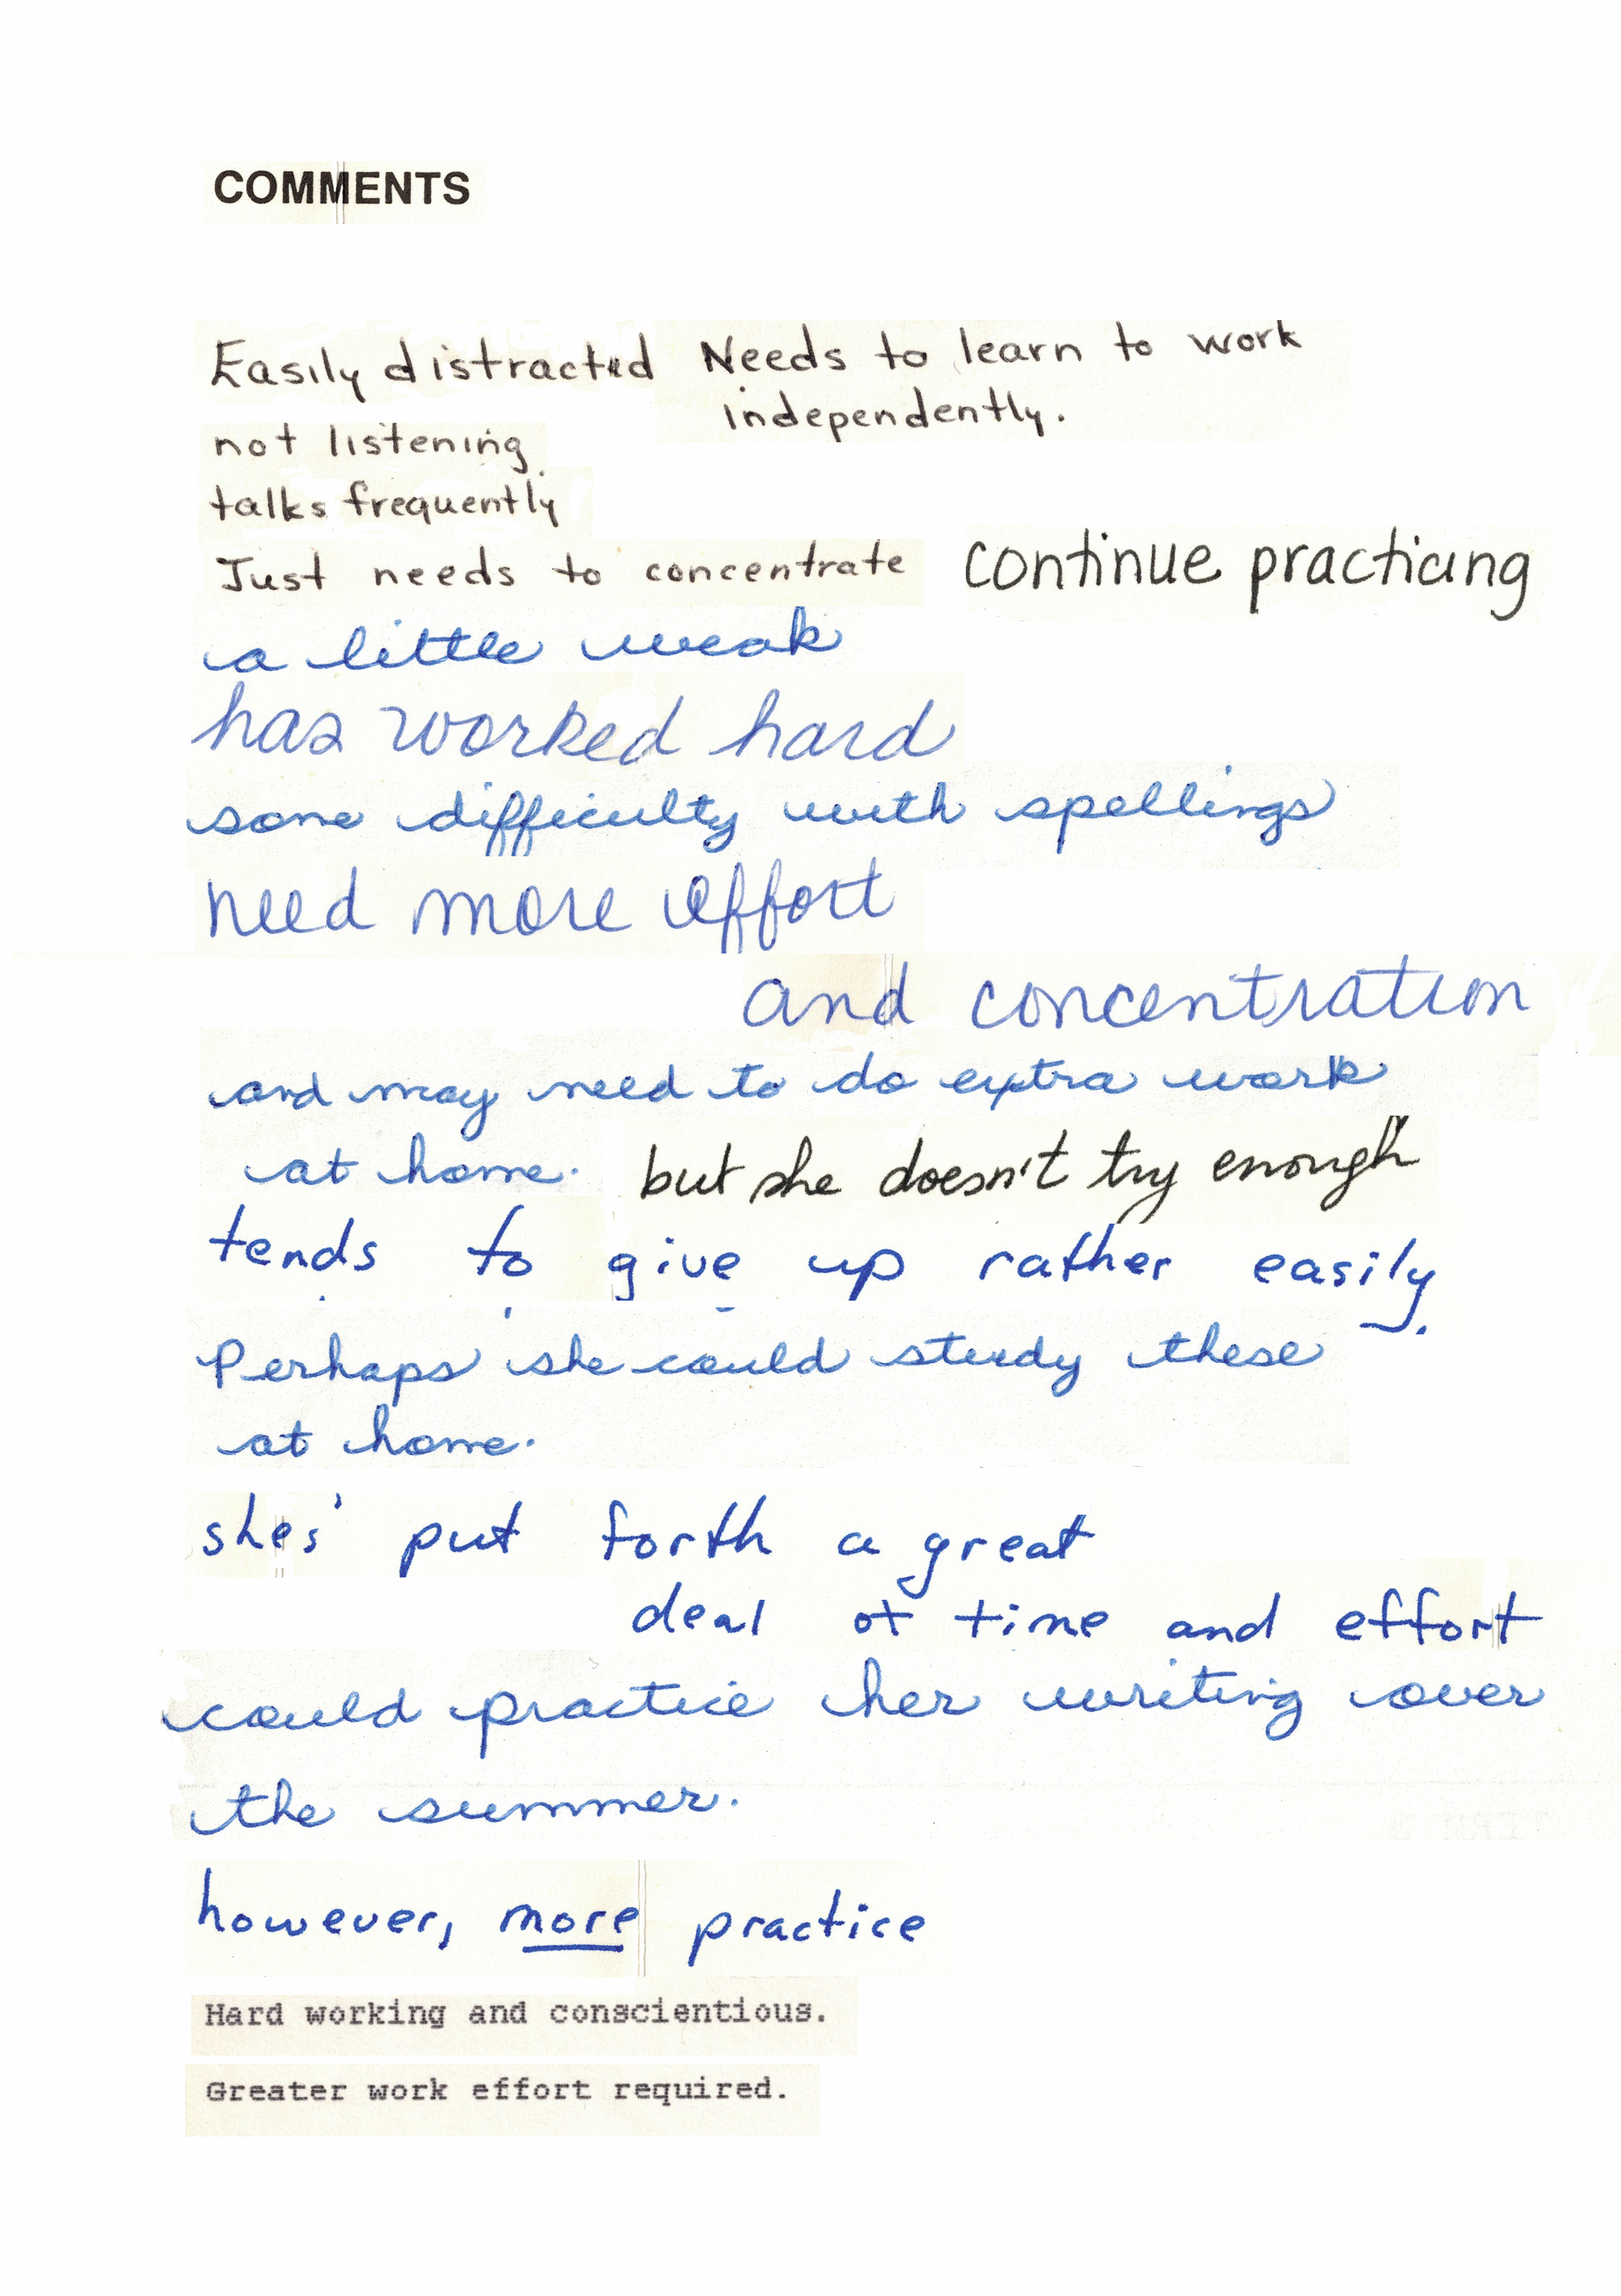 COMMENTS
Easily distracted Needs to learn to work
independently.
not listening
talks frequently
Just needs to concentrate continue practicing
a little weak
has worked hard
some difficulty with spellings
need more effort
and concentration
and may need to do extra work
at home. but she doesn't try enough
tends to give up rather easily.
Perhaps she could study these
at home.
shes' put forth a great
deal of time and effort
could practice her writing over
the summer.
however, more practice
Hard working and conscientious.
Greater work effort required.